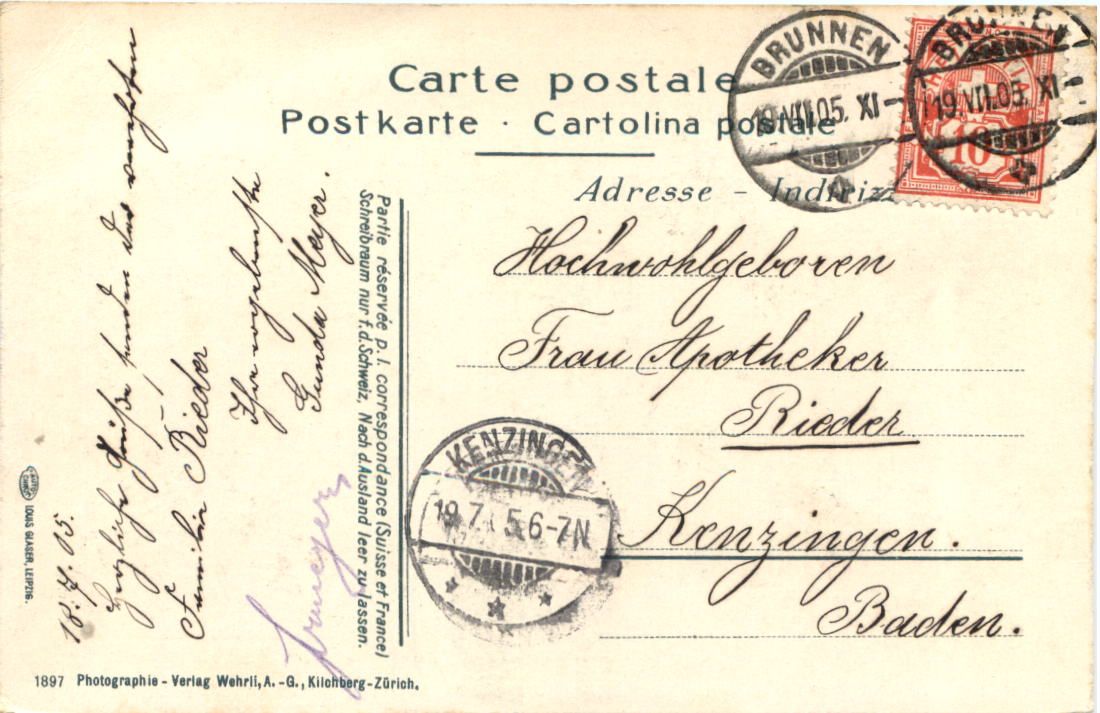 Carte postale
Postkarte · Cartolina postale
Adresse - Indirizz
BRUNNEN
19.VII.05. XI-
BRUNNEN
19.VII.05. XI
10
Hochwohlgeboren
Frau Apotheker
Rieder
Kenzingen.
Baden.
KENZINGEN
19.7. 5.6-7N
Partie réservée p. l. correspondance (Suisse et France)
Schreibraum nur f. d. Schweiz, Nach d. Ausland leer zu lassen.
18.7.05.
Herzliche Grüße senden der verehrten
Familie Rieder
Ihre ergebenste
Gunda Meyer.
LOUIS GLASER, LEIPZIG.
1897 Photographie - Verlag Wehrli, A.-G., Kilchberg-Zürich.